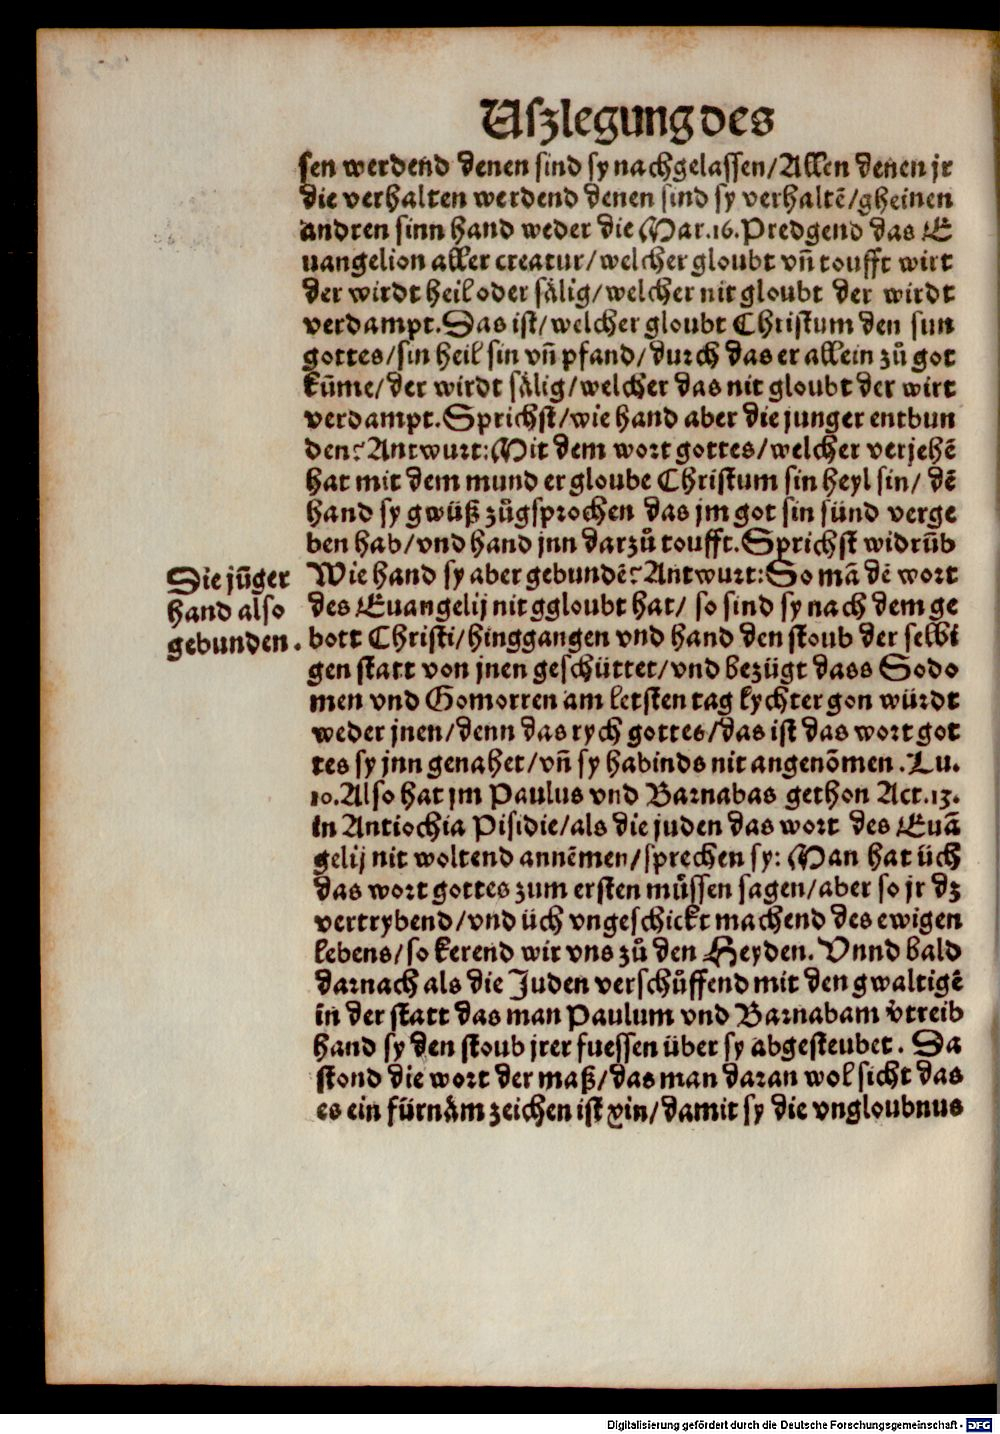 Uſzlegung des
ſen werdend denen ſind ſy nachgelaſſen/Allen denen jr
die verhalten werdend denen ſind ſy verhaltē/gheinen
andren ſinn hand weder die Mar.16.Predgend das E
uangelion aller creatur/welcher gloubt vñ toufft wirt
der wirdt heil oder ſälig/welcher nit gloubt der wirdt
verdampt.Das iſt/welcher gloubt Chriſtum den ſun
gottes/ſin heil ſin vñ pfand/durch das er allein zů got
kūme/der wirdt ſälig/welcher das nit gloubt der wirt
verdampt.Sprichſt/wie hand aber die junger entbun
den? Antwurt:Mit dem wort gottes/welcher verjehē
hat mit dem mund er gloube Chriſtum ſin heyl ſin/ dē
hand ſy gwüß zůgſprochen das jm got ſin ſünd verge
ben hab/vnd hand jnn darzů toufft.Sprichſt widrūb
Wie hand ſy aber gebundē? Antwurt:So mā dē wort
des Euangelij nit ggloubt hat/ ſo ſind ſy nach dem ge
bott Chriſti/hinggangen vnd hand den ſtoub der ſelbi
gen ſtatt von jnen geſchüttet/vnd bezügt dass Sodo
men vnd Gomorren am letſten tag lychter gon würdt
weder jnen/denn das rych gottes/das iſt das wort got
tes ſy jnn genahet/vñ ſy habinds nit angenōmen.Lu.
10.Alſo hat jm Paulus vnd Barnabas gethon Act.13.
in Antiochia Piſidie/als die juden das wort des Euā
gelij nit woltend annēmen/ſprechen ſy: Man hat üch
das wort gottes zum erſten müſſen ſagen/aber ſo jr dz
vertrybend/vnd üch vngeſchickt machend des ewigen
lebens/ſo kerend wir vns zů den Heyden. Vnnd bald
darnach als die Juden verſchůffend mit den gwaltigē
in der ſtatt das man Paulum vnd Barnabam v̓treib
hand ſy den ſtoub jrer fueſſen über ſy abgeſteubet. Da
ſtond die wort der maß/das man daran wol ſicht das
es ein fürnäm zeichen iſt gin/damit ſy die vngloubnus
Die jūger
hand alſo
gebunden.
Digitalisierung gefördert durch die Deutsche Forschungsgemeinschaft - DFG